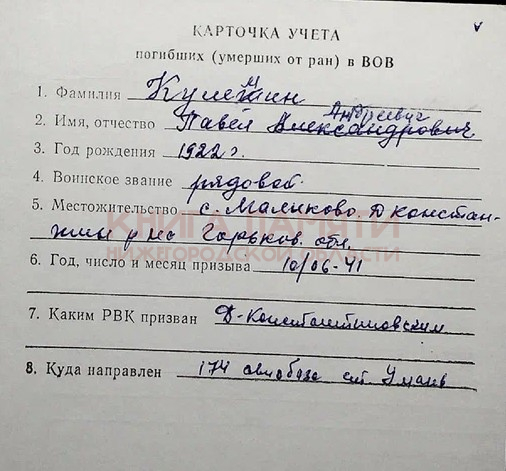 КАРТОЧКА УЧЕТА
погибших (умерших от ран) в ВОВ
1. Фамилия
2. Имя, отчество Павел Александрович Андреевич
3. Год рождения 1922 г.
4. Воинское звание рядовой
5. Местожительство с. Маликово Д Констан-
р-на Горьков. обл.
КНИГА ПАМЯТИ
НИЖЕГОРОДСКОЙ ОБЛАСТИ
6. Год, число и месяц призыва 10/06-41
7. Каким РВК призван Д-Константиновским
8. Куда направлен 174 авиабаза ст. Умань